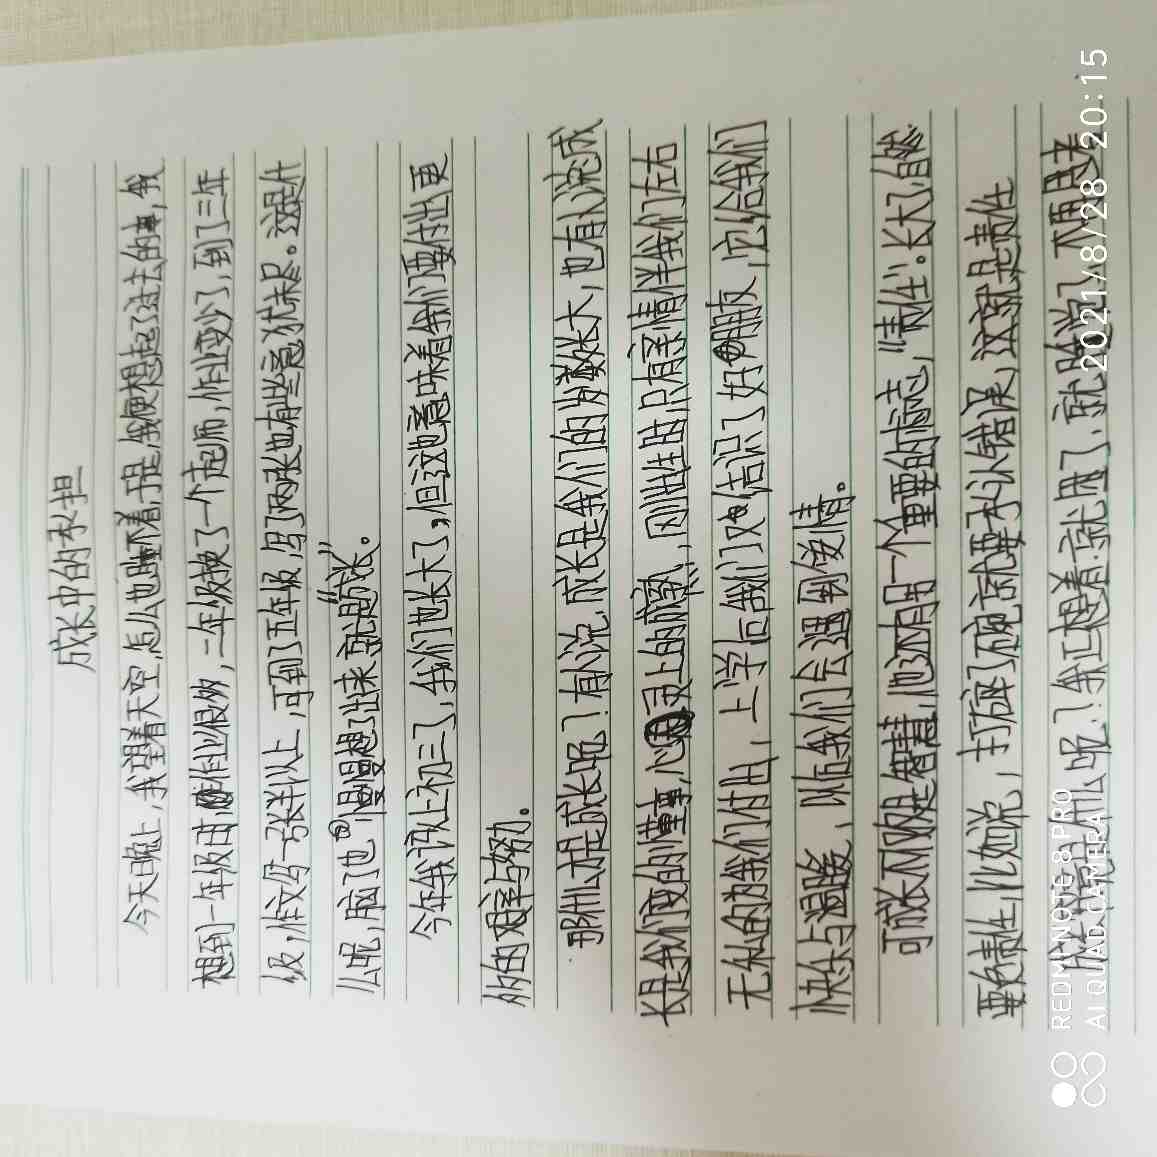 成长中的承担
今天晚上，我望着天空怎么也睡不着于是我便想起了过去的事，我
想到一年级时，作业很多，二年级换了一个老师，作业变少了，到了三年
级，作文写一张半以上，可到了五年级写了两张也有些意犹未尽。这是什
么呢，脑了也慢慢想了出来就是"成长"。
今年我该上初三了，我们也长大了，但这也意味着我们要付出更
多的艰辛与努力。
那什么才是成长呢？有人说，成长是我们的岁数长大，也有人说成
长是我们变的懂事，心灵上的成熟，刚出生时只有亲情伴我们左右
无私的为我们付出，上学后我们又结识了好朋友，它给我们
快乐与温暖，以后我们会遇到爱情。
可成长不仅是智慧，他还有另一个重要的标志，"责任"。长大了，自然
要负责任，比如说，打碎了碗就要承认错误，这就是责任
成长是什么呢？我正想着，就困了，就睡觉了，不再思考
REDMI NOTE 8 PRO
AI QUAD CAMERA
2021/8/28 20:15